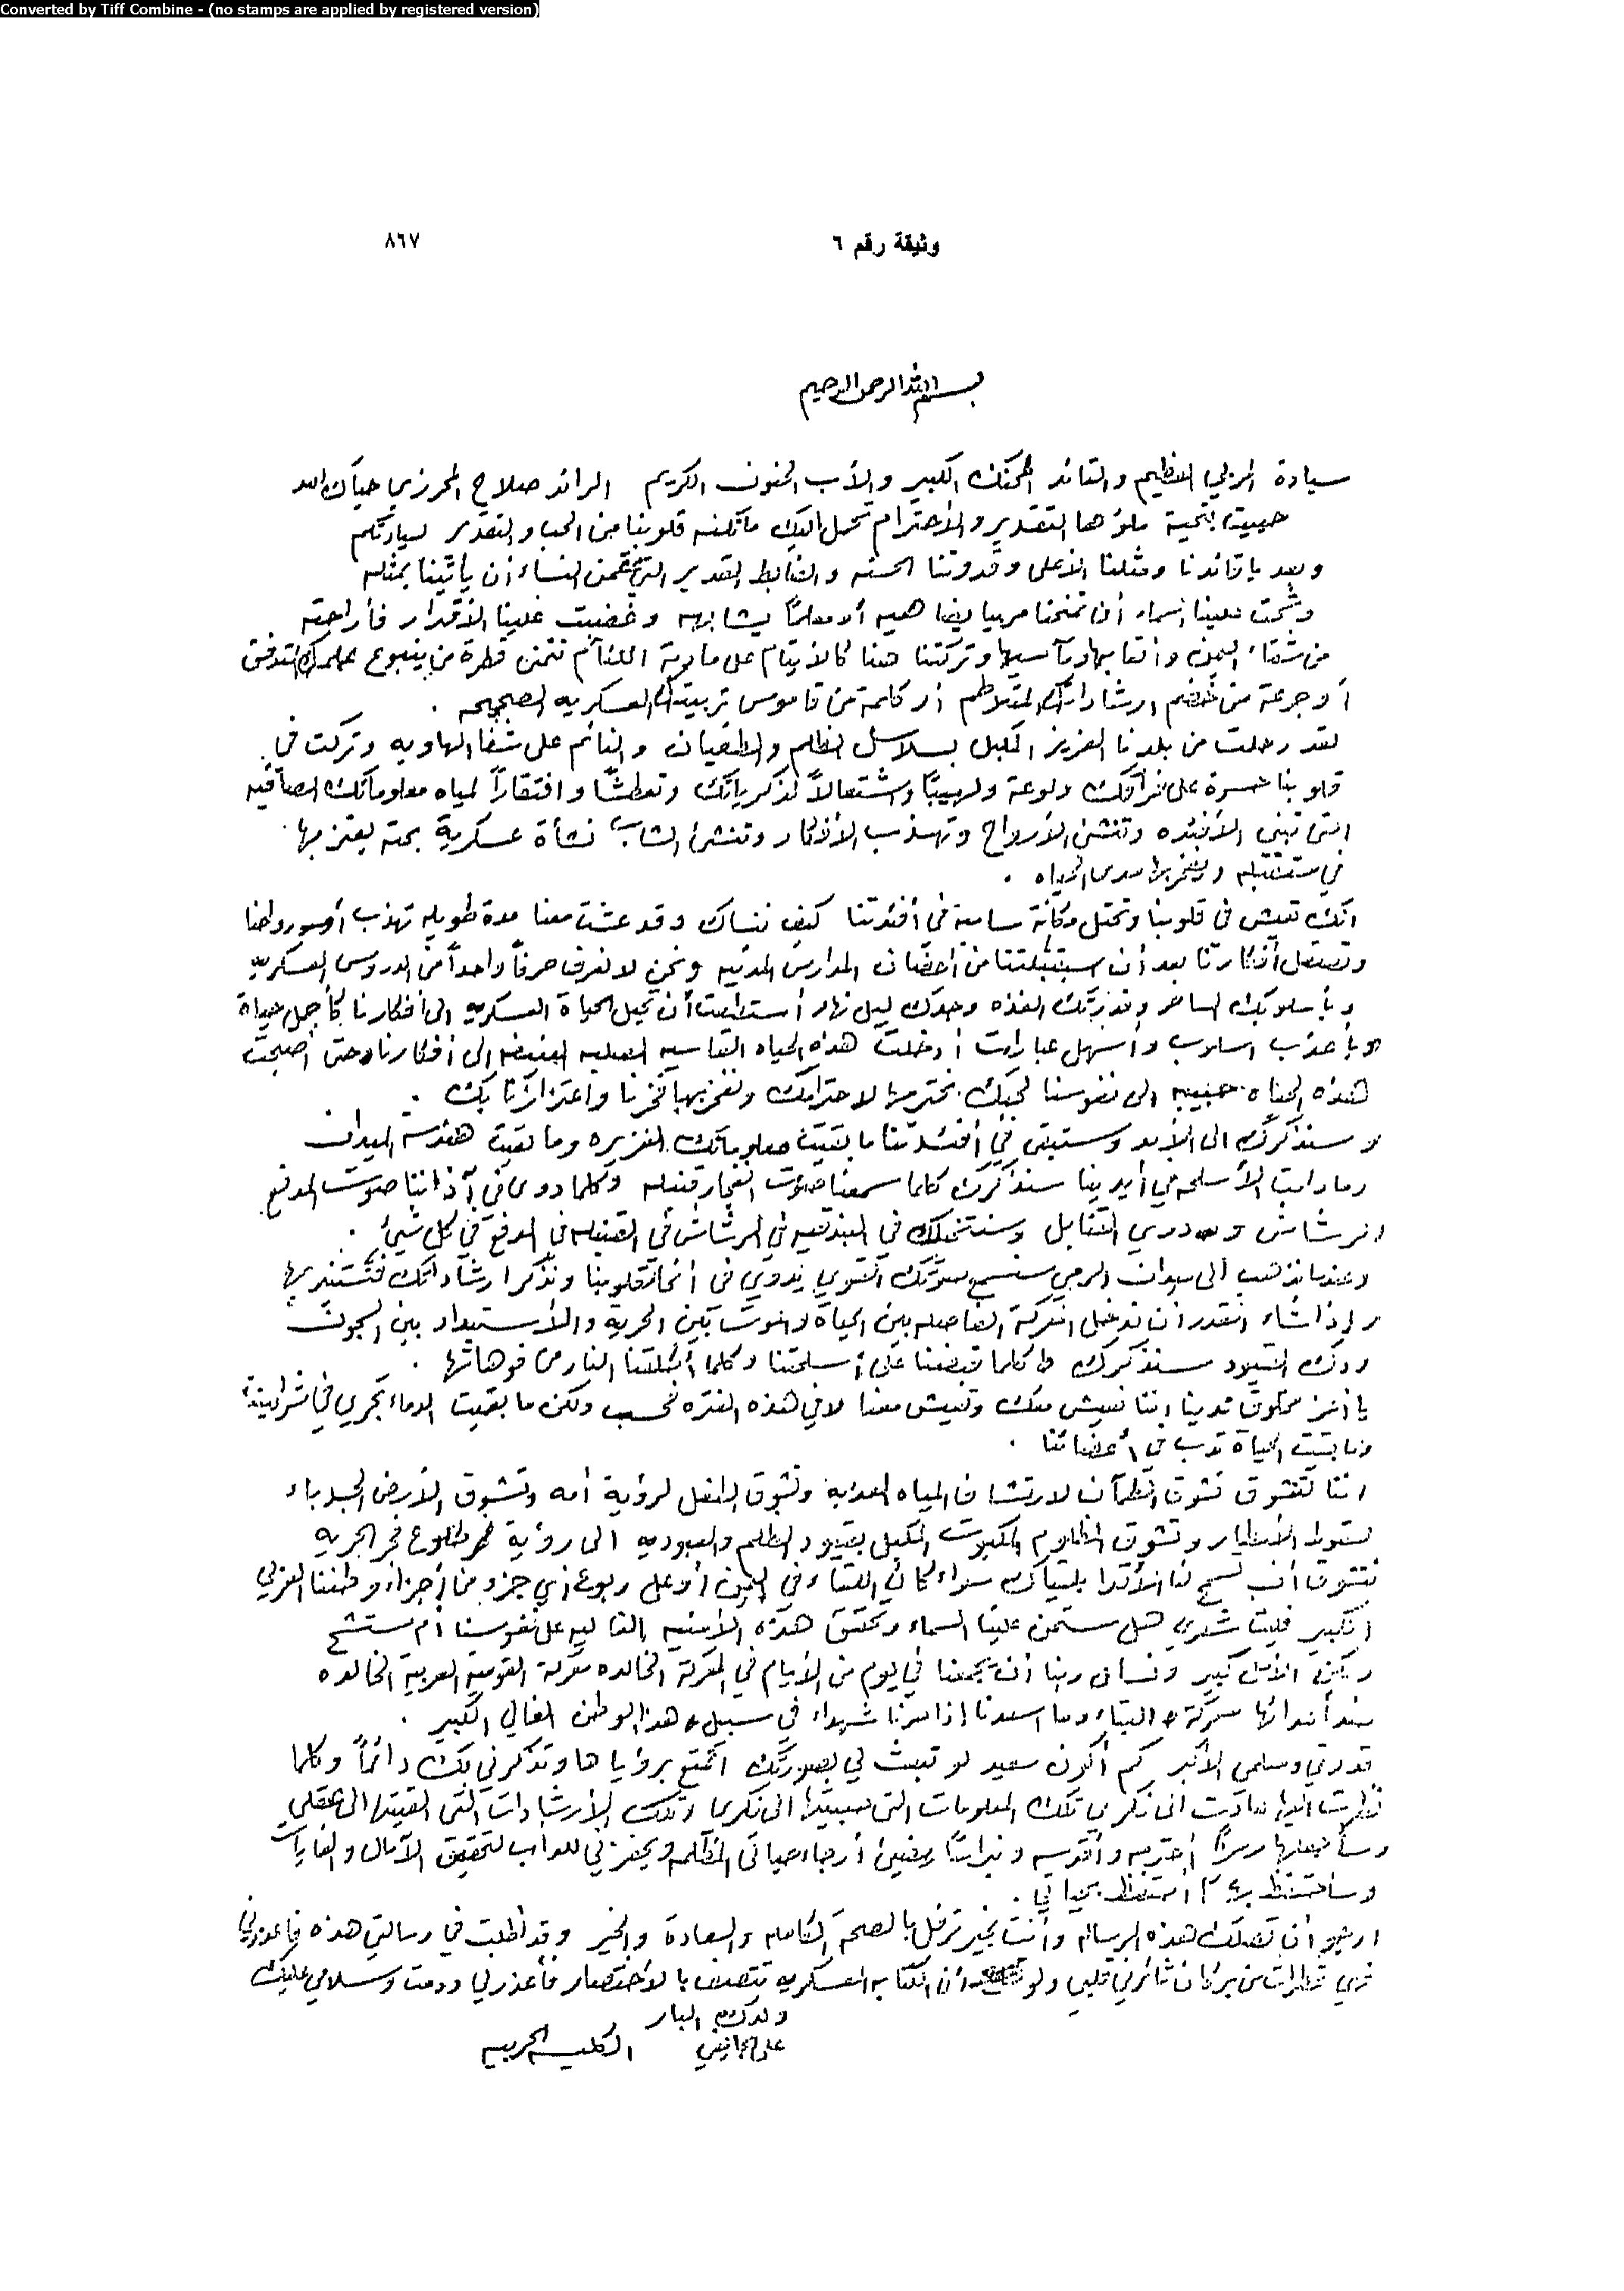 Converted by Tiff Combine - (no stamps are applied by registered version)
وثيقة رقم ٦
٨٦٧
بسم الله الرحمن الرحيم
سيادة المربي العظيم والقائد المحنك الكبير والأب الحنون الكريم الرائد صلاح المحرزي حياك الله
حييت بتحية ملؤها التقدير والأحترام تحمل اليك ماتكنه قلوبنا من الحب والتقدير لسيادتكم
وبعد يا قائدنا ومثلنا الأعلى وقدوتنا الحسنه والضابط القدير الذي عقمن النساء أن يأتينا بمثله
وشحت علينا السماء أن تمنحنا مربيا يضاهيه أو معلماً يشابهه وغضبت علينا الأقدار فأراحته
من شقاء اليمن وأتعابها ومآسيها وتركتنا هنا كالأيتام على مادبة اللئام نتمنى قطرة من ينبوع علمك المتدفق
أو جرعة من خضم ارشاداتك المتلاطم أو كلمة من قاموس تربيتك العسكريه الصحيحه .
لقد رحلت من بلدنا العزيز المكبل بسلاسل الظلم والطغيان والنائم على شفا الهاويه وتركت في
قلوبنا حسرة على فراقك ولوعة ولهيباً واشتعالاً لذكرياتك وتعطشاً وافتقاراً لمياه معلوماتك الصافيه
التي تبني الأفئده وتنشئ الأرواح وتهذب الأفكار وتنشئ الشاب نشأة عسكرية بحته يعتز بها
في مستقبله ويفخر بها مدى الحياه .
انك تعيش في قلوبنا وتحتل مكانة ساميه في أفئدتنا كيف ننساك وقد عشت معنا مدة طويله تهذب
وتصقل أفكارنا بعد أن استقبلتنا من أحضان المدارس المدنيه ونحن لا نعرف حرفاً واحداً من الدروس العسكريه
وبأسلوبك الساحر وقدرتك الفذه وجدك ليل نهار أستطعت أن تحيل الحياة العسكريه الى أفكارنا كأجمل حياة
وبأعذب اسلوب وأسهل عبارات أدخلت هذه الحياه القاسيه الصلبه البغيضه الى أفكارنا وحتى أصبحت
هذه الحياه حبيبه الى نفوسنا لحبك نحترمها لاحترامك ونفخر بها فخرنا واعتزازنا بك .
وسنذكرك الى الأبد وستبقى في أفئدتنا ما بقيت معلوماتك الغزيره وما بقيت هندسه الميدان
وما دامت الأسلحه في أيدينا سنذكرك كلما سمعنا صوت انفجار قنبله وكلما دوى في آذاننا صوت المدفع
الرشاش ودوي القنابل وسنتخيلك في البندقيه في الرشاش في القنبله في المدفع في كل شئ .
وعندما نذهب الى ميدان الرمي سنسمع صوتك القوي يدوي في أنحاء قلوبنا ونذكر ارشاداتك فنستنير بها
وإذا شاء القدر أن ندخل المعركة الفاصله بين الحياة والموت بين الحرية والأستبداد بين السجون
ودك القيود سنذكرك كلما قبضنا على أسلحتنا وكلما أطلقنا النار من فوهاتها .
يا أعز مخلوق لدينا اننا نعيش معك وتعيش معنا لا في هذه الفتره فحسب ولكن ما بقيت الدماء تجري في شراييننا
وما بقيت الحياة تدب في أعضائنا .
اننا نتشوق تشوق الظمآن لارتشاف المياه العذبه وتشوق الطفل لرؤية أمه وتشوق الأرض الجدباء
لسقوط الأمطار وتشوق المظلوم المكبوت المكبل بقيود الظلم والعبوديه الى رؤية طلوع فجر الحريه
نتشوق أن تسمح لنا الأقدار بلقياك سواء كان اللقاء في اليمن أو على ربوع أي جزء من أجزاء وطننا العربي
الكبير فليت شعري هل ستمن علينا السماء وتحقق هذه الأمنيه الغاليه على نفوسنا أم ستشح
ولكن الأمل كبير ونسأل ربنا أن يجمعنا في يوم من الأيام في المعركة الخالده معركة القومية العربية الخالده
ضد أعدائها معركة البقاء وما اسعدنا إذا صرنا شهداء في سبيل هذا الوطن الغالي الكبير .
قدوتي ومعلمي الأكبر كم أكون سعيد لو تبعث لي بصورتك اتمتع برؤياها وتذكرني بك دائماً وكلما
نظرت اليها عادت الى فكري تلك المعلومات التي صببتها الى فكري وتلك الأرشادات التي القيتها الى عقلي
وسأجعلها رمزاً أحترمه وأقدسه ونبراساً يضيئ أرجاء حياتي المظلمه ويحفزني للدأب لتحقيق الآمال والغايات
وسأحتفظ بها كما أحتفظ بحياتي .
ارجو أن تصلك هذه الرساله وأنت بخير ترفل بالصحه الكامله والسعادة والخير وقد أطلت في رسالتي هذه فاعذرني
فهي قطرات من بركان ثائر في قلبي ولو أن الكتابه العسكريه تتصف بالأختصار فأعذرني ودمت وسلامي عليك
ولدك البار
علي الحائفي الكليه الحربيه